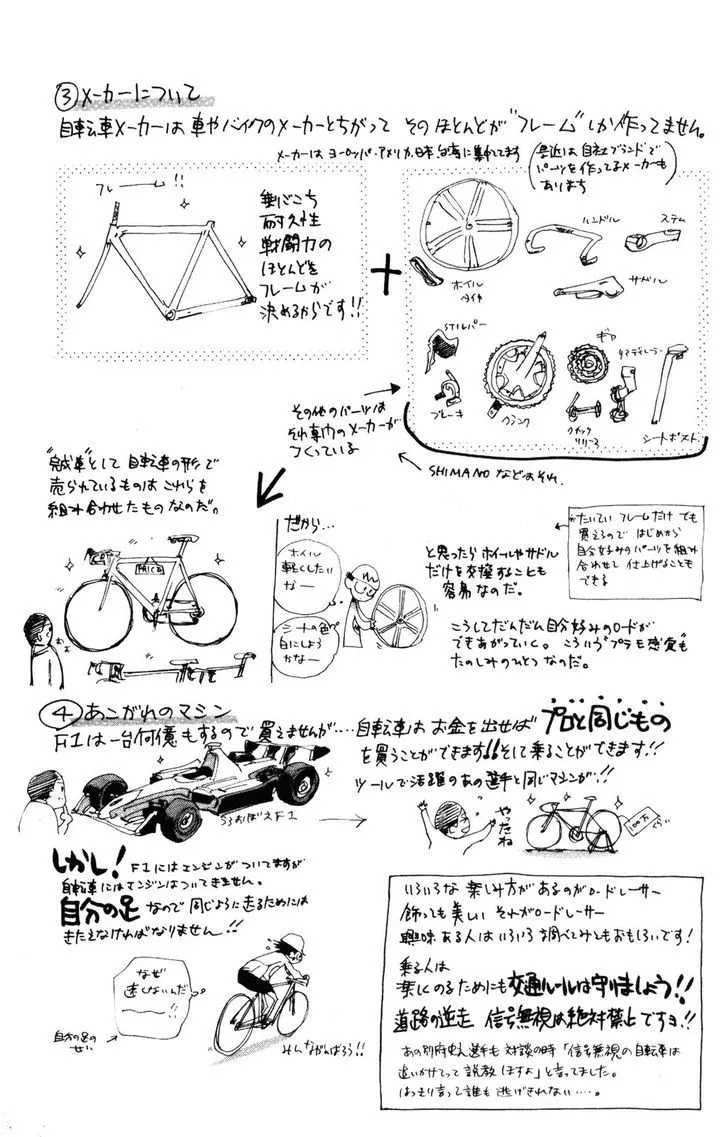 ③メーカーについて
自転車メーカーは車やバイクのメーカーとちがって そのほとんどが"フレーム"しか作ってません。
メーカーは ヨーロッパ・アメリカ・日本・台湾に集中してます
(最近は自社ブランドで
パーツを作ってるメーカーも
あります)
フレーーム!!
乗りごこち
耐久性
戦闘力の
ほとんどを
フレームが
決めるからです!!
+
ハンドル
ステム
ホイル
タイヤ
サドル
STIレバー
ギヤ
リアディレーラー
ブレーキ
クランク
クイック
リリース
シートポスト
その他のパーツは
それ専門のメーカーが
つくっている
SHIMANOなどはそれ。
"完成車"として 自転車の形で
売られているものは これらを
組み合わせたものなのだ。
PRICE
だから…
ホイル
軽くしたい
なー
シートの色
白にしよう
かなー
と思ったら ホイルやサドル
だけを交換することも
容易なのだ。
たいてい フレームだけでも
買えるので はじめから
自分好みのパーツを組み
合わせし 仕上げることも
できる
こうしてだんだん自分好みのロードが
できあがっていく。 こういう"プラモ感覚"も
たのしみのひとつなのだ。
④あこがれのマシン
F1は一台何億もするので買えませんが…
自転車は お金を出せば プロと同じもの
を買うことができます!!そして乗ることができます!!
ツールで活躍のあの選手と同じマシンが!!
うろおぼえF1
やったね
100万
ぐらい
しかし! F1にはエンジンがついてますが
自転車にはエンジンはついてきません。
自分の足 なので 同じように走るためには
きたえなければなりません!!
なぜ
速くないんだ
自分の足の
せい
みんながんばろう!!
いろいろな 楽しみ方があるのがロードレーサー
飾っても美しい それがロードレーサー
興味ある人は いろいろ調べてみてもおもしろいです!
乗る人は
楽しくのるためにも交通ルールは守りましょう!!
道路の逆走 信号無視は絶対禁止ですヨ!!
あの別府史之選手も 対談の時「信号無視の自転車は
追いかけてって 説教しますよ」と言ってました。
はっきり言って誰も 逃げきれない……。